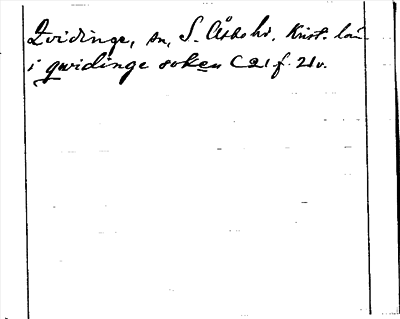 Qvidinge, sn, S. Åsbo hd. Krist. län
i qwidinge soken C21 f. 21v.